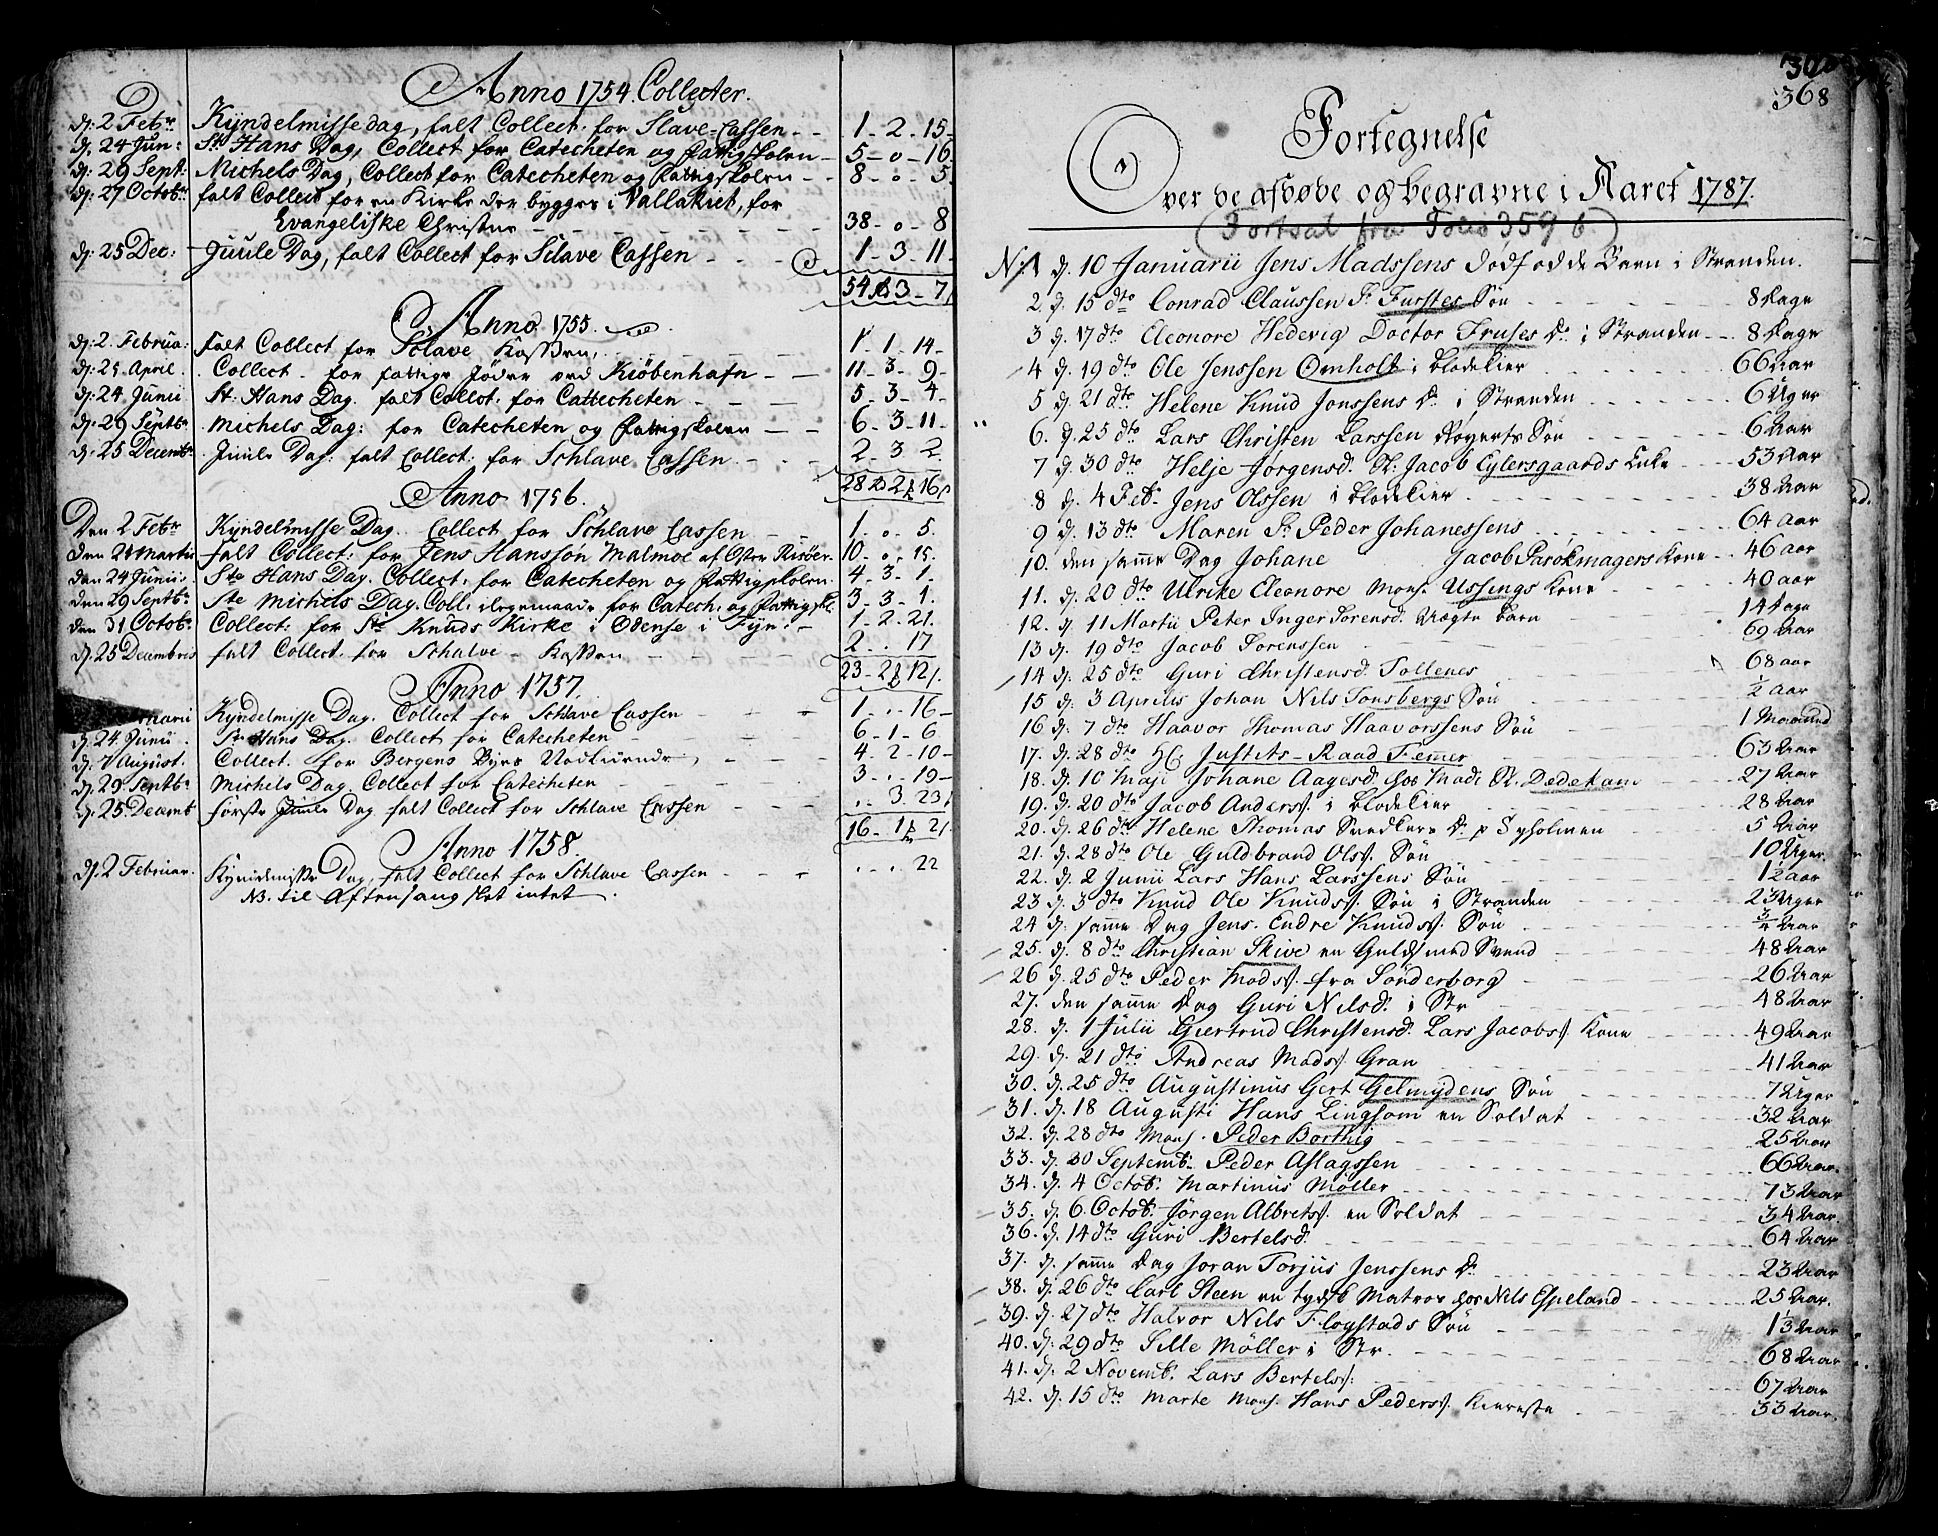 Anno 1754. Collecter.
d: 2 Febr: Kyndelmisse dag, falt Collect. for Slave-Cassen - - 1 - 2 - 15 -
d: 24 Jun: St: Hans Dag, Collect for Catecheten og Fattigskolen - 5 - 0 - 16.
d: 29 Sept: Michels Dag, Collect for Catecheten og Fattigskolen - - 8 - 0 - 5.
d: 27 Octobr: falt Collect for en Kirke der bygges i Vallakiet, for
Evangeliske Christne - - - 38 - 0 - 8
d: 25 Dec: Juule Dag, falt Collect for Sclave Cassen - - - 1 - 3 - 11 -
54 3 - 7
Anno 1755.
d: 2 Februa: falt Collect for Sclave Kassen, - - 1 - 1 - 14 -
d: 21 April. Collect - for fattige Jøder ved Kiöbenhafn - - 11 - 3 - 9 -
d: 24 Junii St: Hans Dag. falt Collect. for Cattecheten - - - 5 - 3 - 4 -
d: 29 Septbr Michels Dag: for Catecheten og Fattigskolen - - 6 - 3 - 11 -
d: 25 Decemb: Juule Dag: falt Collect. for Schlave Cassen - - - 2 - 3 2.
28 2 16
Anno 1756.
Den 2 Febr Kyndelmisse Dag. Collect for Schlave Cassen - - 1. 0. 5.
den 21 Martii falt Collect: for Jens Hansson Malmoe af Oster Risöer - 10 - 0 - 15.
den 24 Junii: Ste Hans Dag. Collect. for Catecheten og Fattigskolen. 4 - 3 - 1.
den 29 Septbr Ste Michels Dag. Coll: ligemaade for Catech: og Fattigskl. 3 - 3 - 1.
den 31 Octobr Collect: for St: Knuds Kirke i Odense i Fyn: - 1 - 2. 21.
d: 25 Decembris falt Collect. for Schalve - Kassen - - - 2 - . 17
23 - 2 12
Anno 1757.
Kyndelmisse Dag. Collect for Schlave Cassen - - - 1 - . . 16 -
d: 24 Junii St: Hans Dag. Collect for Catecheten - - 6 - 1 - 6
d: 7 August. Collect. for Bergens Byes Nødlidende, - - 4 - 2 - 10 -
d: 29 Septbr Michels Dag. Collect for Catecheten - - 3 - . . 19 -
d: 25 Decemb første Juule Dag falt Collect for Schlave Cassen - - - . . 3. 23
16 - 1 2
Anno 1758.
d: 2 Februar. Kyndelmisse Dag, falt Collect for Schlave Cassen - - - . . . 22
NB. til Aftensang skot intet.
368
Fortegnelse
Over de afdøde og begravne i Aaret 1787.
(Fortsat fra Folio 359 b)
No: 1 d. 10 Januarii Jens Madssens dødfødde Barn i Stranden.
2. d. 15 dto Conrad Claussen Sr. Furstes Søn - - 8 Dage
3 d. 17 dto Eleonore Hedevig Doctor Fruses Dr. i Stranden - - 8 Dage
4 d. 19 dto Ole Jenssen Omholt i Blødekier - - 66 Aar
5 d. 21 dto Helene Knud Jonssens Dr. i Stranden - - 6 Uger
6. d. 25 dto Lars Christen Larssen Røyerts Søn - - 6 Aar
7 d. 30 dto Helje Jørgensd. Sl: Jacob Eylersgaards Enke - - 53 Aar
8 d. 4 Feb. Jens Olssen i Blødekier - - 38 Aar
9 d. 13 dto Maren Sr. Peder Johanessens - - 64 Aar
10. den samme Dag Johane Jacob Parokmagers Kone - - 46 aar
11. d. 20 dto Ulrike Eleonore Mons. Ussings Kone - - 40 aar
12. d. 11 Martii Peter Inger Sorensd. Uægte Barn - - 14 dage
13 d. 19 dto Jacob Sorenssen - - 69 Aar
14 d. 25 dto Guri Christensd. Tollenes - - 68 aar
15 d. 3 Aprilis Johan Nils Tonsbergs Søn - - 1/2 aar
16 d. 7 dto Haavor Thomas Haavorssens Søn - - 1 Maaned
17. d. 28 dto Hr. Justits-Raad Femmer - - 63 Aar
18. d. 10 Maji Johane Aagesd. hos Mad: Sl. Dedekam - - 27 Aar
19. d. 20 dto Jacob Anders. i Blødekier - - 28 Aar
20. d. 26 dto Helene Thomas Snedkers Dr. p Tyholmen - - 5 Aar
21. d. 28 dto Ole Guldbrand Ols. Søn - - 10 Uger.
22. d. 2 Junii Lars Hans Larssens Søn - - 1 1/2 aar
23 d. 3 dto Knud Ole Knuds. Søn i Stranden - - 23 Uger
24 d. samme Dag Jens. Endre Knuds. Søn - - 3/4 Aar
25. d. 8 dto Christian Skive en Guldsmed Svend - - 48 Aar
26 d. 25 dto Peder Mads. fra Sønderborg - - 26 Aar
27. den samme Dag Guri Nilsd. i Str - - 48 Aar
28. d. 1 Julii Giertrud Christensd. Lars Jacobs. Kone - - 49 Aar
29. d. 21 dto Andreas Mads. Gran - - 41 Aar
30. d. 25 dto Augustinus Gert Gelmydens Søn - - 7 Uger
31. d. 18 Augusti Hans Lingsom en Soldat - - 32 Aar
32. d. 28 dto Mons. Peder Borthig - - 25 Aar
33. d. 30 Septemb. Peder Aslagssen - - 66 Aar.
34. d. 4 Octob. Martinus Møller - - 73 Aar
35. d. 6. Octob. Jørgen Albrets. en Soldat - - 34 Aar.
36. d. 14 dto Guri Bertelsd. - - 64 Aar
37. d. samme Dag Joran Torjus Jenssens Dr. - - 23 Aar
38. d. 26 dto Carl Steen en tydsk Matros hos Nils Espeland - - 25 Aar.
39. d. 27 dto Halvor Nils Flogstads Søn - - 1 1/3 Aar
40. d. 29 dto Sille Møller i Str. - - 68 Aar
41. d. 2 Novemb. Lars Bertels. - - 67 Aar
42. d. 15 dto Marte Mons. Hans Peders. Kiereste - - 33 Aar.